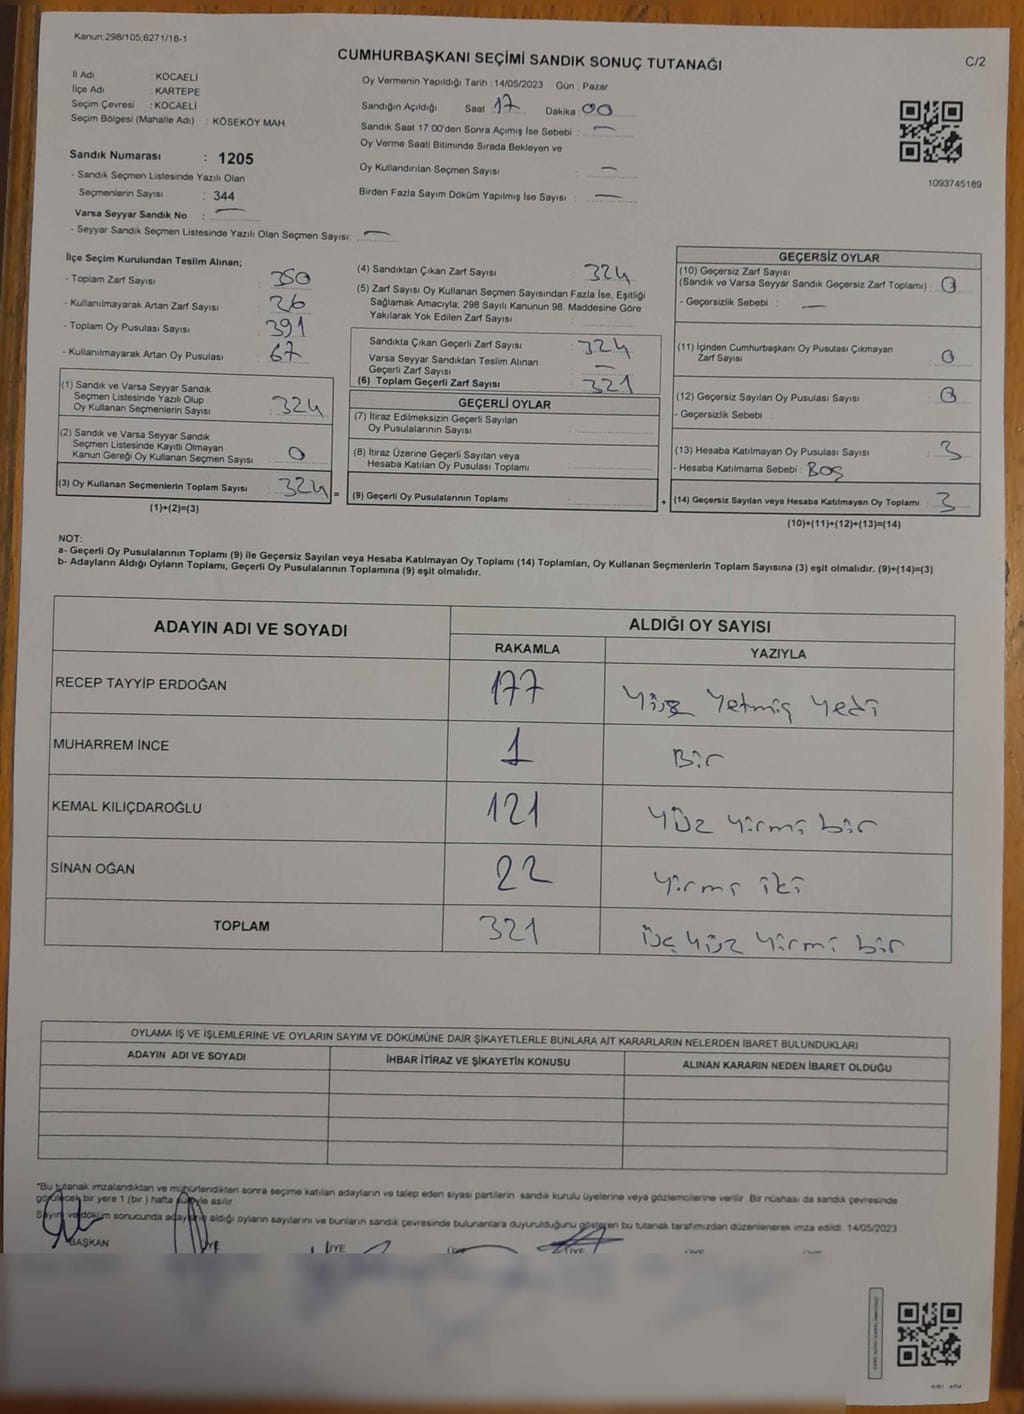 Kanun:298/105,6271/16-1
CUMHURBAŞKANI SEÇİMİ SANDIK SONUÇ TUTANAĞI
C/2
İl Adı : KOCAELİ
İlçe Adı : KARTEPE
Seçim Çevresi : KOCAELİ
Seçim Bölgesi (Mahalle Adı) : KÖSEKÖY MAH.
Sandık Numarası : 1205
- Sandık Seçmen Listesinde Yazılı Olan
Seçmenlerin Sayısı : 344
Varsa Seyyar Sandık No : —
- Seyyar Sandık Seçmen Listesinde Yazılı Olan Seçmen Sayısı: —
Oy Vermenin Yapıldığı Tarih : 14/05/2023 Gün : Pazar
Sandığın Açıldığı Saat 17 Dakika : 00
Sandık Saat 17:00'den Sonra Açımış İse Sebebi : —
Oy Verme Saati Bitiminde Sırada Bekleyen ve
Oy Kullandırılan Seçmen Sayısı : —
Birden Fazla Sayım Döküm Yapılmış İse Sayısı : —
1093745189
İlçe Seçim Kurulundan Teslim Alınan;
- Toplam Zarf Sayısı : 350
- Kullanılmayarak Artan Zarf Sayısı : 26
- Toplam Oy Pusulası Sayısı : 391
- Kullanılmayarak Artan Oy Pusulası : 67
(1) Sandık ve Varsa Seyyar Sandık
Seçmen Listesinde Yazılı Olup
Oy Kullanan Seçmenlerin Sayısı : 324
(2) Sandık ve Varsa Seyyar Sandık
Seçmen Listesinde Kayıtlı Olmayan
Kanun Gereği Oy Kullanan Seçmen Sayısı : 0
(3) Oy Kullanan Seçmenlerin Toplam Sayısı : 324 =
(1)+(2)=(3)
(4) Sandıktan Çıkan Zarf Sayısı : 324
(5) Zarf Sayısı Oy Kullanan Seçmen Sayısından Fazla İse, Eşitliği
Sağlamak Amacıyla; 298 Sayılı Kanunun 98. Maddesine Göre
Yakılarak Yok Edilen Zarf Sayısı :
Sandıkta Çıkan Geçerli Zarf Sayısı : 324
Varsa Seyyar Sandıktan Teslim Alınan
Geçerli Zarf Sayısı : —
(6) Toplam Geçerli Zarf Sayısı : 321
GEÇERLİ OYLAR
(7) İtiraz Edilmeksizin Geçerli Sayılan
Oy Pusulalarının Sayısı :
(8) İtiraz Üzerine Geçerli Sayılan veya
Hesaba Katılan Oy Pusulası Toplamı :
(9) Geçerli Oy Pusulalarının Toplamı : +
GEÇERSİZ OYLAR
(10) Geçersiz Zarf Sayısı
(Sandık ve Varsa Seyyar Sandık Geçersiz Zarf Toplamı) : 0
- Geçersizlik Sebebi : —
(11) İçinden Cumhurbaşkanı Oy Pusulası Çıkmayan
Zarf Sayısı : 0
(12) Geçersiz Sayılan Oy Pusulası Sayısı : 0
- Geçersizlik Sebebi :
(13) Hesaba Katılmayan Oy Pusulası Sayısı : 3
- Hesaba Katılmama Sebebi : Boş
(14) Geçersiz Sayılan veya Hesaba Katılmayan Oy Toplamı : 3
(10)+(11)+(12)+(13)=(14)
NOT:
a- Geçerli Oy Pusulalarının Toplamı (9) ile Geçersiz Sayılan veya Hesaba Katılmayan Oy Toplamı (14) Toplamları, Oy Kullanan Seçmenlerin Toplam Sayısına (3) eşit olmalıdır. (9)+(14)=(3)
b- Adayların Aldığı Oyların Toplamı, Geçerli Oy Pusulalarının Toplamına (9) eşit olmalıdır.
ADAYIN ADI VE SOYADI
ALDIĞI OY SAYISI
RAKAMLA YAZIYLA
RECEP TAYYİP ERDOĞAN 177 Yüz Yetmiş Yedi
MUHARREM İNCE 1 Bir
KEMAL KILIÇDAROĞLU 121 Yüz Yirmi bir
SİNAN OĞAN 22 Yirmi iki
TOPLAM 321 Üç Yüz Yirmi bir
OYLAMA İŞ VE İŞLEMLERİNE VE OYLARIN SAYIM VE DÖKÜMÜNE DAİR ŞİKAYETLERLE BUNLARA AİT KARARLARIN NELERDEN İBARET BULUNDUKLARI
ADAYIN ADI VE SOYADI İHBAR İTİRAZ VE ŞİKAYETİN KONUSU ALINAN KARARIN NEDEN İBARET OLDUĞU
"Bu tutanak imzalandıktan ve mühürlendikten sonra seçime katılan adayların ve talep eden siyasi partilerin sandık kurulu üyelerine veya gözlemcilerine verilir. Bir nüshası da sandık çevresinde
görülecek bir yere 1 (bir) hafta süreyle asılır.
Sayım ve döküm sonucunda adayların aldığı oyların sayılarını ve bunların sandık çevresinde bulunanlara duyurulduğunu gösteren bu tutanak tarafımızdan düzenlenerek imza edildi. 14/05/2023
BAŞKAN ÜYE ÜYE ÜYE ÜYE ÜYE